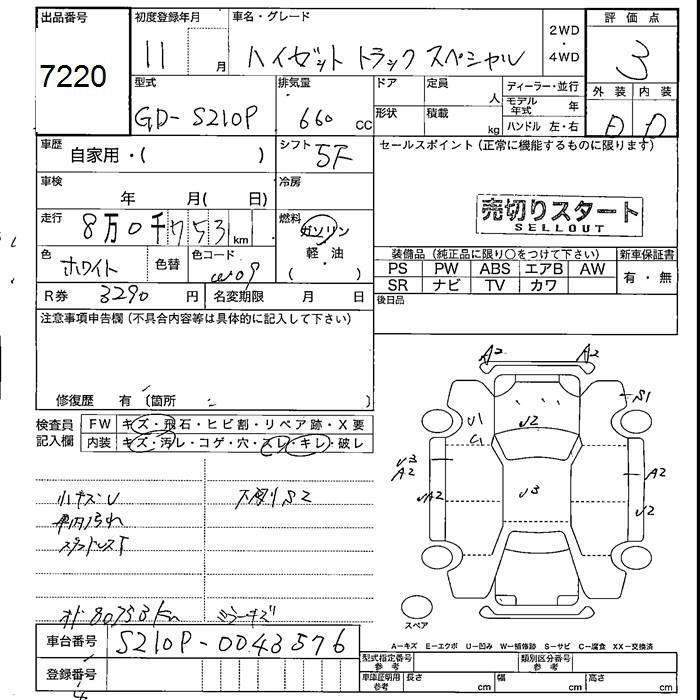 出品番号
7220
初度登録年月
11 月
車名・グレード
ハイゼット トラック スペシャル
2WD
・
4WD
評価点
3
型式
GD-S210P
排気量
660 cc
ドア
定員
人
形状
積載
kg
ディーラー・並行
モデル年式 年
ハンドル 左・右
外装
内装
D D
車歴
自家用・( )
シフト 5F
セールスポイント(正常に機能するものに限ります)
車検
年 月( 日)
冷房
売切りスタート
SELLOUT
走行
8万0千753 km
燃料
ガソリン
・
軽・油
( )
色
ホワイト
色替
色コード
W09
装備品(純正品に限り○をつけて下さい)
新車保証書
PS PW ABS エアB AW
有・無
SR ナビ TV カワ
R券 3290 円
名変期限 月 日
後日品
注意事項申告欄(不具合内容等は具体的に記入して下さい)
修復歴 有(箇所 )
検査員
記入欄
FW キズ・飛石・ヒビ割・リペア跡・X要
内装 キズ・汚レ・コゲ・穴・スレ・キレ・破レ
小キズU
車内汚れ
スタッドレスT
下廻りS2
オド 80753km
ミラーキズ
A2 A2
S1
U1
C1
U2
U3
A2
UA2
U3
A2
U2
スペア
A−キズ E−エクボ U−凹み W−補修跡 S−サビ C−腐食 XX−交換済
車台番号
S210P-0043576
登録番号
型式指定番号
参考
類別区分番号
参考
車庫証明用
参考
長さ cm
幅 cm
高さ cm